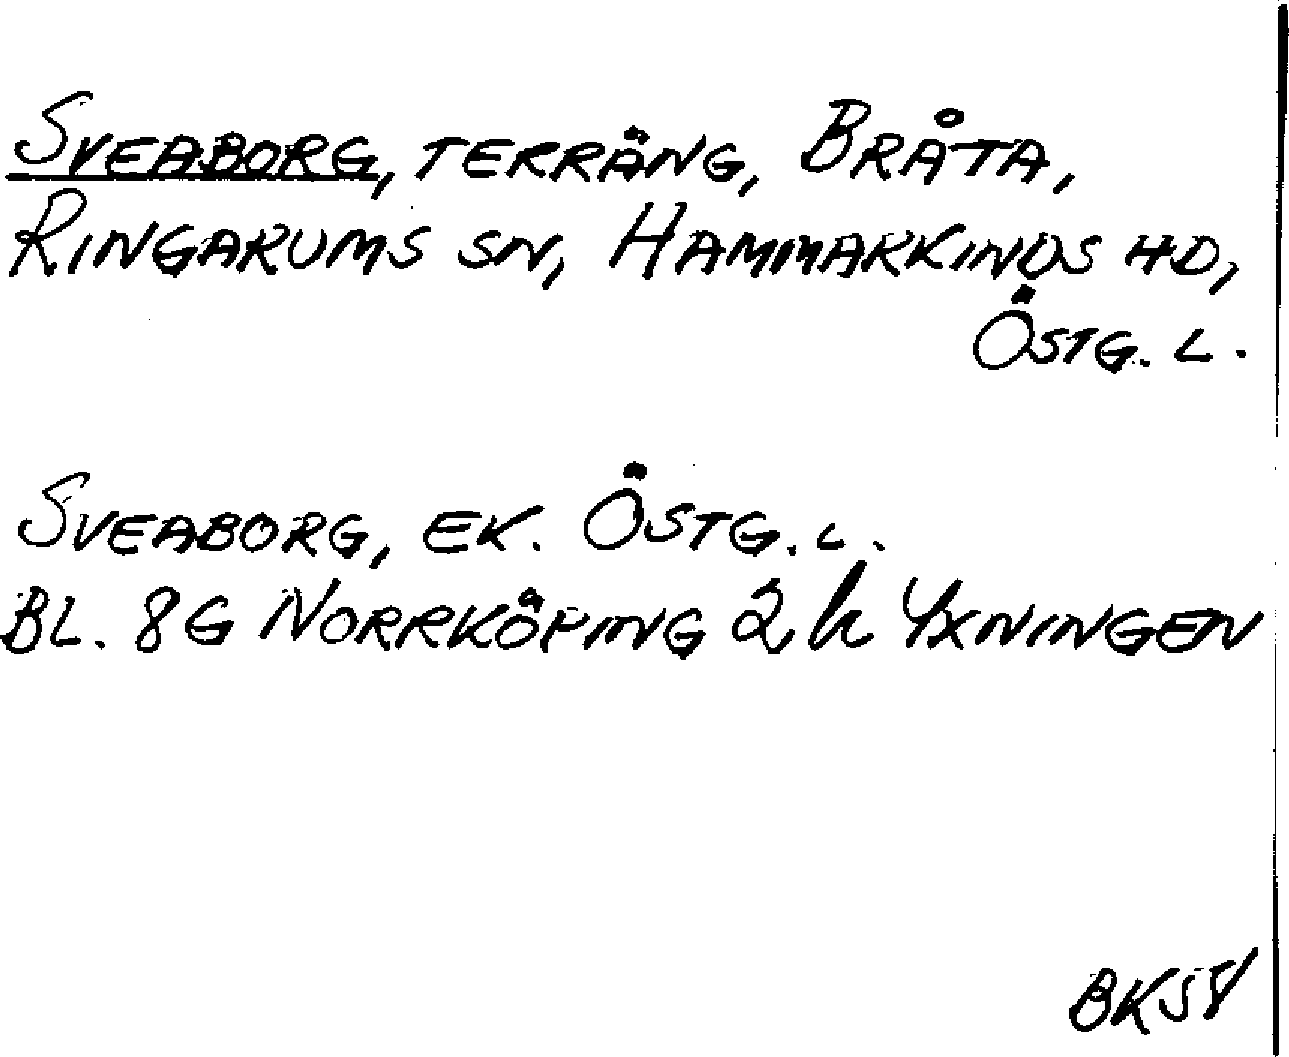 Sveaborg, terräng, Bråta,
Ringarums sn, Hammarkinds hd,
Östg. l.
Sveaborg, ek. Östg. l.
Bl. 8G Norrköping 2 h Yxningen